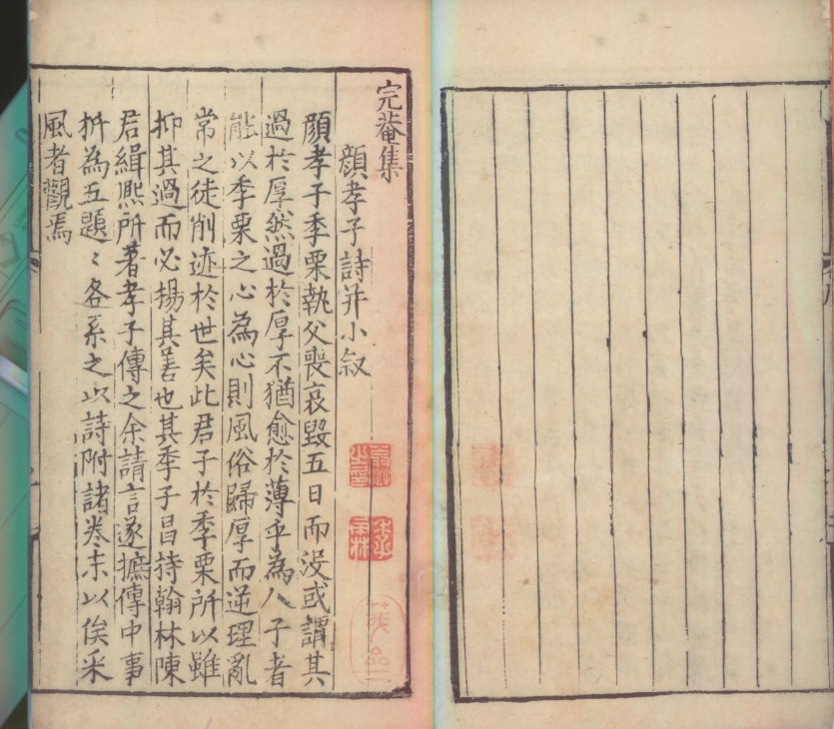 完菴集
顏孝子詩并小叙
顏孝子季栗執父喪哀毀五日而没或謂其
過於厚然過於厚不猶愈於薄乎為人子者
能以季栗之心為心則風俗歸厚而逆理亂
常之徒削迹於世矣此君子於季栗所以雖
抑其過而必揚其善也其季子昌持翰林陳
君緝熈所著孝子傳之余請言遂摭傳中事
析為五題〻各系之以詩附諸卷末以俟采
風者觀焉